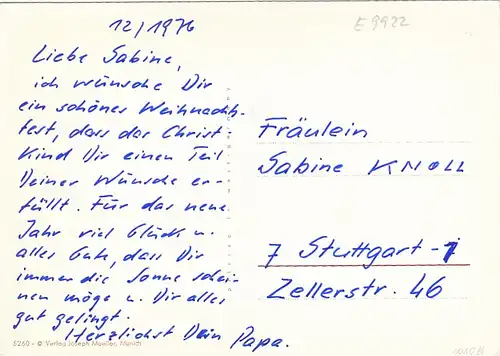 12/1976
E 9922
Liebe Sabine,
ich wünsche Dir
ein schönes Weihnachts-
fest, dass das Christ-
Kind Dir einen Teil
Deiner Wünsche er-
füllt. Für das neue
Jahr viel Glück u.
alles Gute, dass Dir
immer die Sonne schei-
nen möge u. Dir alles
gut gelingt.
Herzlichst Dein Papa.
Fräulein
Sabine KNOLL
7 Stuttgart-1
Zellerstr. 46
5260 - © Verlag Joseph Mueller, Munich